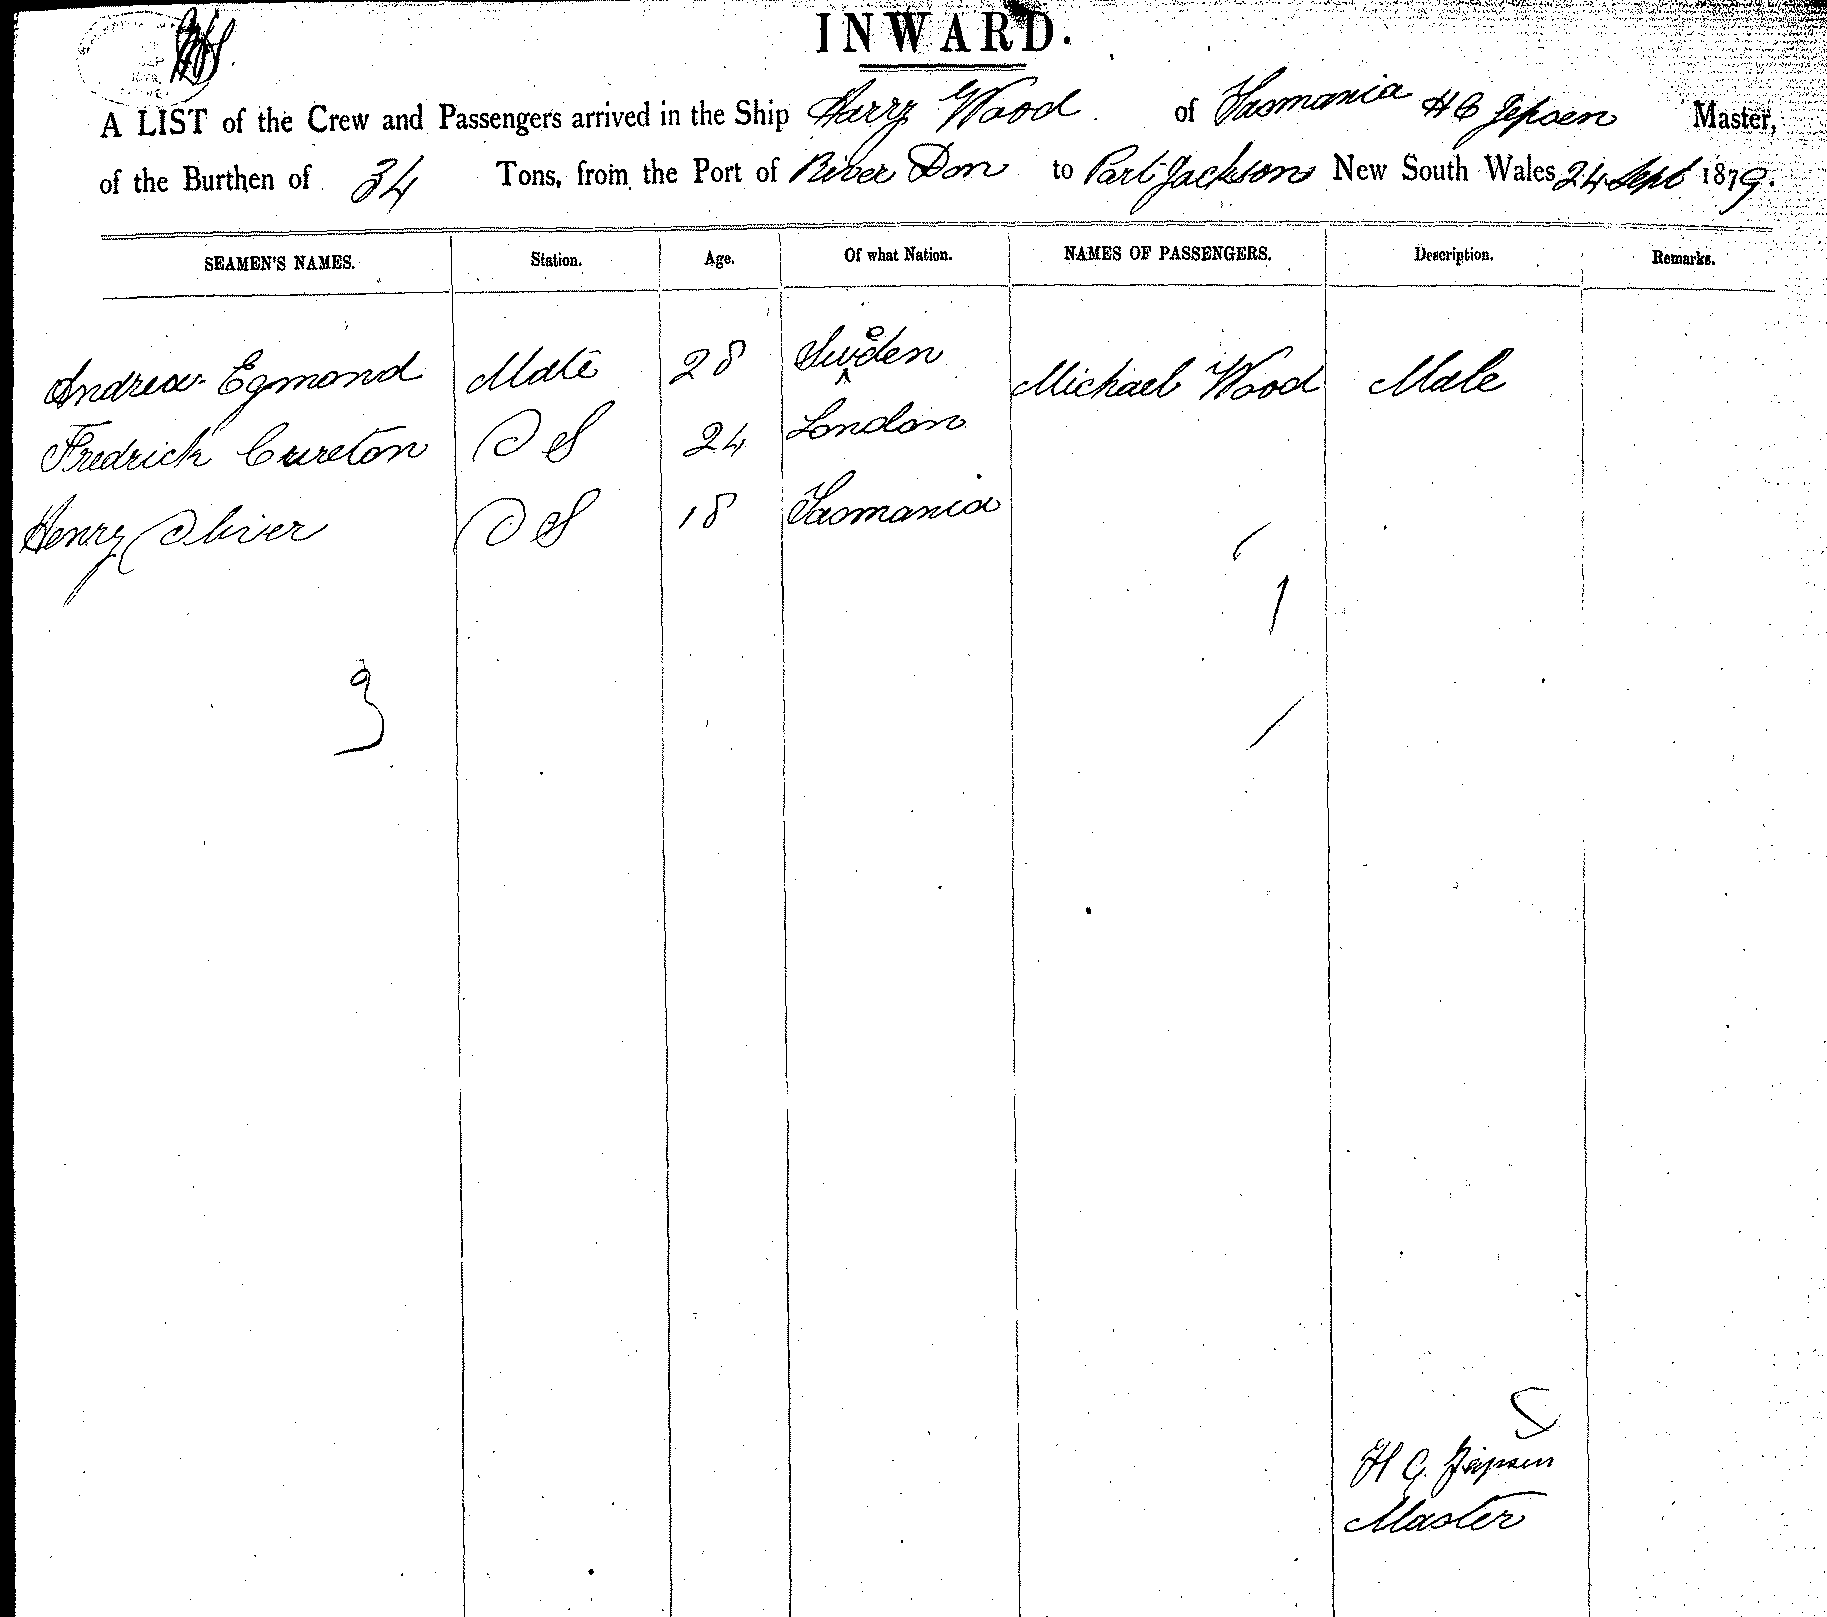 INWARD.
A LIST of the Crew and Passengers arrived in the Ship Harry Wood of Tasmania H C Jepsen Master,
of the Burthen of 34 Tons, from the Port of River Don to Port Jackson New South Wales 24 Sept 1879.
SEAMEN'S NAMES. Station. Age. Of what Nation. NAMES OF PASSENGERS. Description. Remarks.
Andrew Egmond Mate 28 Sweden Michael Wood Male
Fredrick Cureton O S 24 London
Henry Oliver O S 18 Tasmania
1
3
H C Jepsen
Master